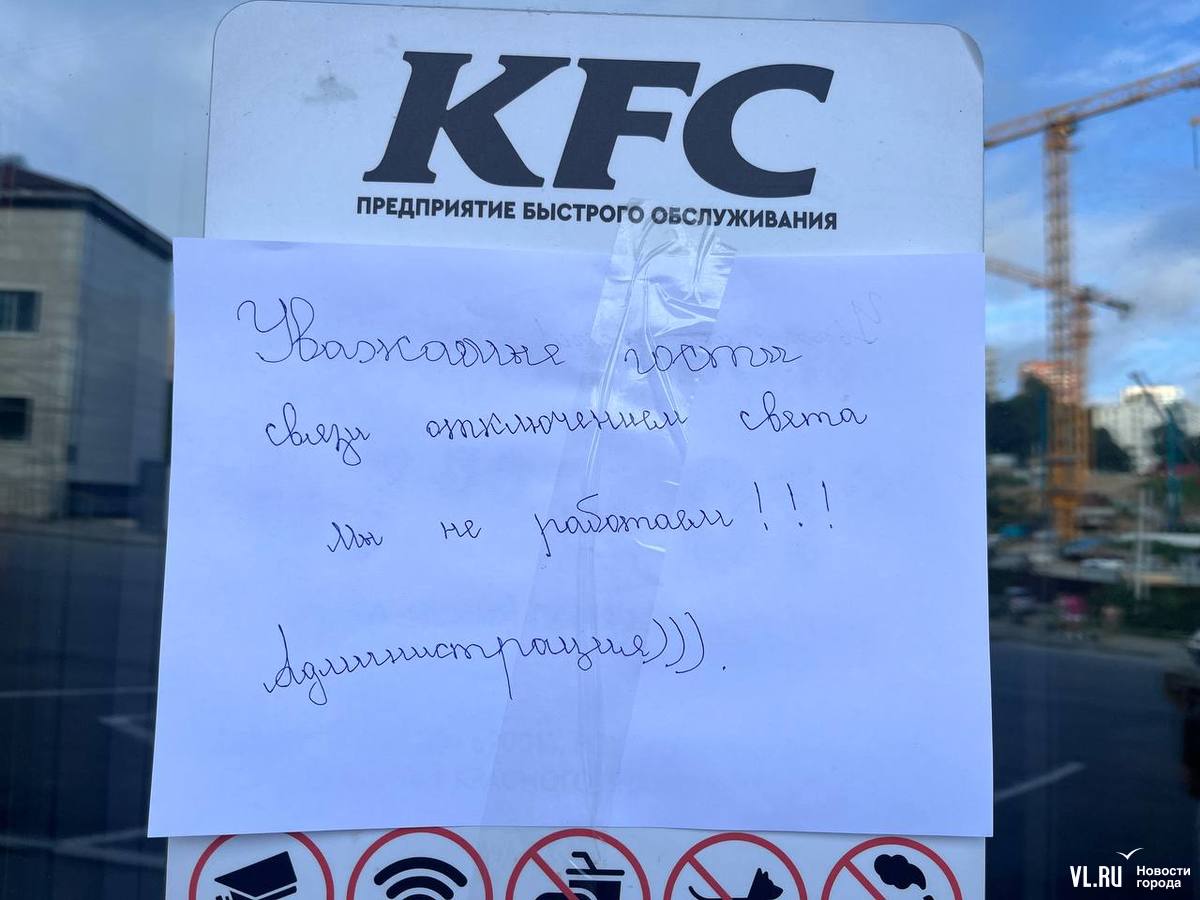 KFC
ПРЕДПРИЯТИЕ БЫСТРОГО ОБСЛУЖИВАНИЯ
Уважаемые гости
связи отключением света
мы не работаем!!!
Администрация))).
VL.RU Новости
города